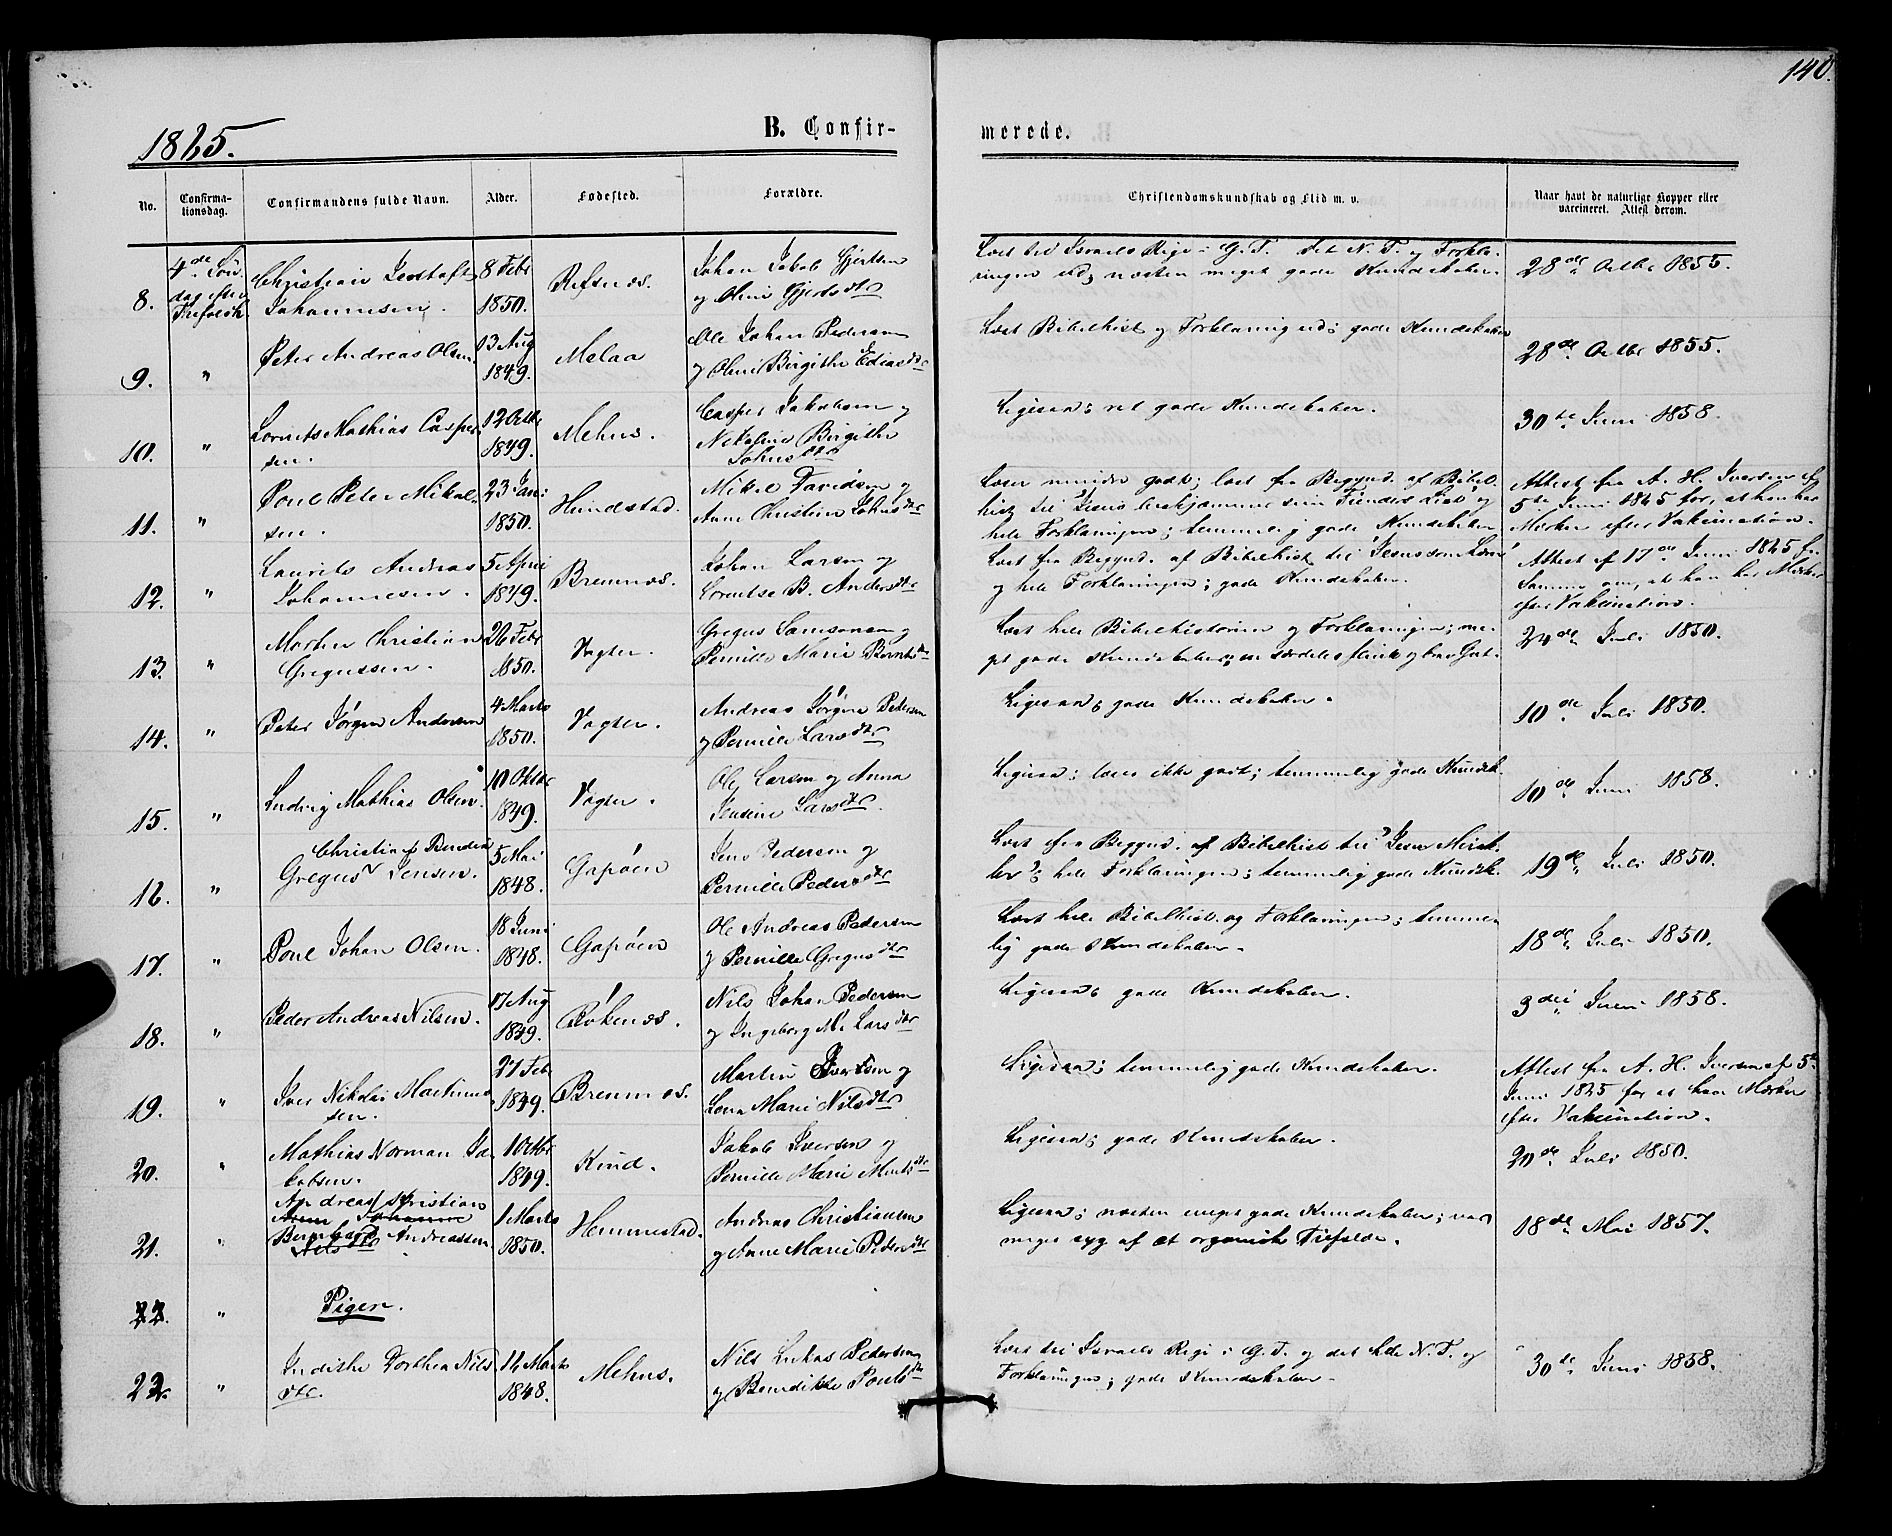 140.
1865.
B. Confir-
merede.
No.
Confirma-
tionsdag.
Confirmandens fulde Navn.
Alder.
Fødested.
Forældre.
Christendomskundskab og Flid m. v.
Naar havt de naturlige Kopper eller
vaccineret. Attest derom.
8.
4de Søn-
dag efter
Trefoldh.
Christian
Johannesen.
8 Febr
1850.
Refsnæs.
Johan Jakob Gjertsen
og Oline Gjertsdtr
Læst til Israels Rige i G. T. det N. T. og Forkla-
ringen ud; næsten meget gode Kundskaber.
28de Octbr 1855.
9.
"
Peter Andreas Olsen
13 Aug
1849.
Melaa
Ole Johan Pedersen
og Oline Birgithe
Læst Bibelhist. og Forklaring ud; gode Kundskaber
28de Octbr 1855.
10.
"
Lorents Mathias Casper-
sen.
12 Octbr
1849.
Mehus.
Casper Jakobsen og
Nikoline Birgithe
Johnsdtr
Ligesaa; ret gode Kundskaber.
30te Juni 1858.
11.
"
Poul Peter Mikal-
sen.
23 Jan:
1850.
Hundstad.
Mikal Davidsen og
Anne Christine Johnsdtr
Læser mindre godt; læst fra Begynd. af Bibel-
hist. til Jesus beskjæmmer sine Fienders List og
hele Forklaringen; temmelig gode Kundskaber
Attest fra A. H. Iversen af
5te Juni 1865 for, at han har
Mærker efter Vakcination.
12.
"
Laurits Andreas
Johannesen.
5 April
1849.
Bremnæs.
Johan Larsen og
Lorentse B. Andersdtr
Læst fra Begynd. af Bibelhist. til Jesus som Lærer
og hele Forklaringen; gode Kundskaber.
Attest af 17de Juni 1865 fra
Samme om, at han har Mærker
efter Vakcination.
13.
"
Morten Christian
Gregussen.
26 Febr
1850.
Vogter.
Gregus Samsonsen og
Pernille Marie Berntsdtr
Læst hele Bibelhistorien og Forklaringen; me-
get gode Kundskaber; en særdeles flink og brav Gut.
24de Juli 1850.
14.
"
Peter Jørgen Andersen
4 Marts
1850.
Vogter.
Andreas Jørgen Pedersen
og Pernille Larsdtr
Ligesaa; gode Kundskaber.
10de Juli 1850.
15.
"
Ludvig Mathias Olsen.
10 Oktbr
1849.
Vogter.
Ole Larsen og Anna
Jensine Larsdtr
Ligesaa; læser ikke godt; temmelig gode Kundsk.
10de Juni 1858.
16.
"
Christian
Gregus Jensen.
5 Mai
1848.
Gapøen
Jens Pedersen og
Pernille Pedersdtr
Læst fra Begynd. af Bibelhist. til "Jesu Mirak-
ler"; hele Forklaringen; temmelig gode Kundsk.
19de Juli 1850.
17.
"
Poul Johan Olsen.
18 Juni
1848.
Gapøen
Ole Andreas Pedersen
og Pernille Gregusdtr
Læst hele Bibelhist. og Forklaringen; temme-
lig gode Kundskaber.
18de Juli 1850.
18.
"
Peder Andreas Nilsen.
17 Aug
1849.
Røkenæs.
Nils Johan Pedersen
og Ingeborg M. Larsdtr
Ligesaa; gode Kundskaber.
3die Juni 1858.
19.
"
Iver Nikolai Martinus-
sen.
27 Feb
1849.
Bremnæs.
Martin Iversen og
Lena Marie Nilsdtr
Ligesaa; temmelig gode Kundskaber.
Attest fra A. H. Iversen af 5te
Juni 1865 for at have Mærker
efter Vakcination.
20.
"
Mathias Norman Ja-
kobsen.
1 Octbr
1849.
Kind.
Jakob Iversen og
Pernille Marie
Ligesaa; gode Kundskaber.
20de Juli 1850.
21.
"
Andreas Christian
Bernhard Andreassen
1 Marts
1850.
Hemmestad.
Andreas Christiansen
og Anne Marie Pedersdtr
Ligesaa; næsten meget gode Kundskaber; var
meget syg af et organisk Tilfælde.
18de Mai 1857.
22.
"
Piger.
22.
"
Indithe Dorthea Nils-
dtr.
16 Marts
1848.
Mehus.
Nils Lukas Pedersen
og Bendikte Poulsdtr
Læst til Israels Rige i G. T. og det hele N. T. og
Forklaringen; gode Kundskaber.
30te Juni 1858.